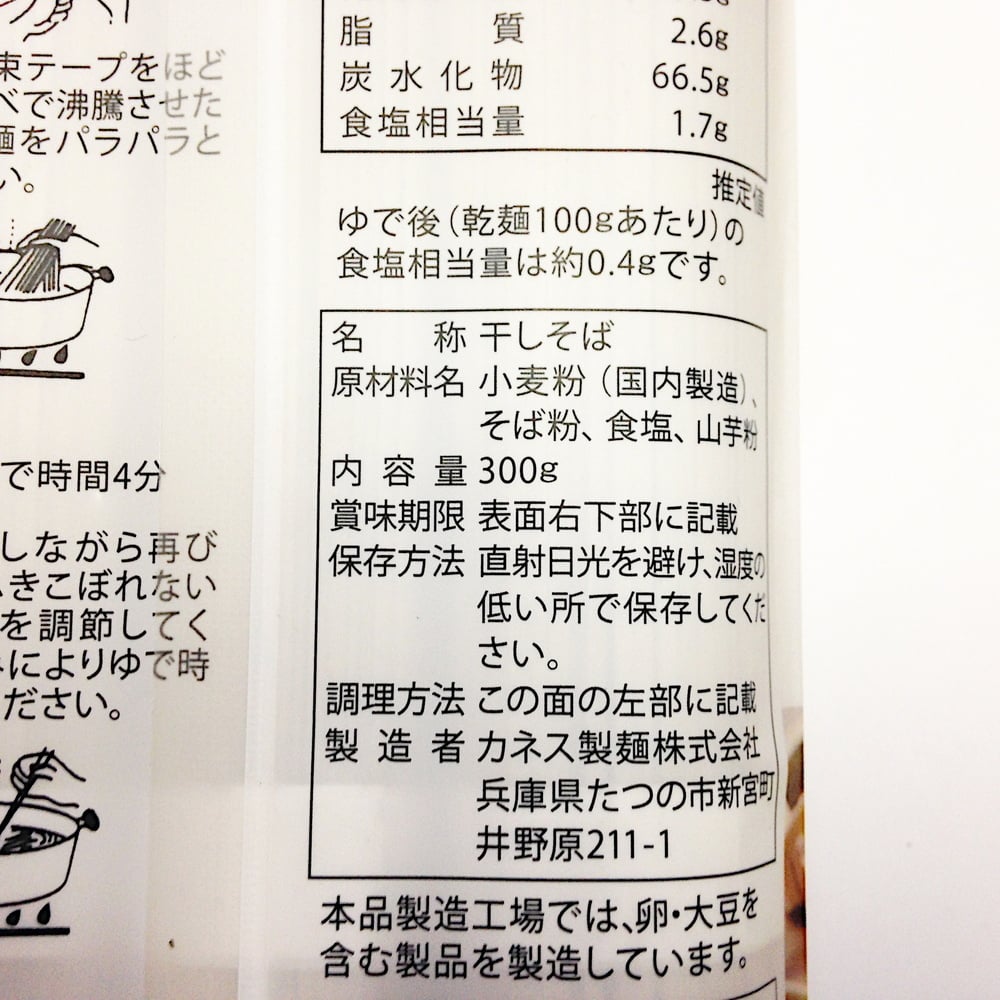 束テープをほど
べで沸騰させた
麺をパラパラと
い。
で時間4分
しながら再び
ふきこぼれない
を調節してく
みによりゆで時
ださい。
脂質 2.6g
炭水化物 66.5g
食塩相当量 1.7g
推定値
ゆで後(乾麺100gあたり)の
食塩相当量は約0.4gです。
名称 干しそば
原材料名 小麦粉(国内製造)、
そば粉、食塩、山芋粉
内容量 300g
賞味期限 表面右下部に記載
保存方法 直射日光を避け、湿度の
低い所で保存してくだ
さい。
調理方法 この面の左部に記載
製造者 カネス製麺株式会社
兵庫県たつの市新宮町
井野原211-1
本品製造工場では、卵・大豆を
含む製品を製造しています。